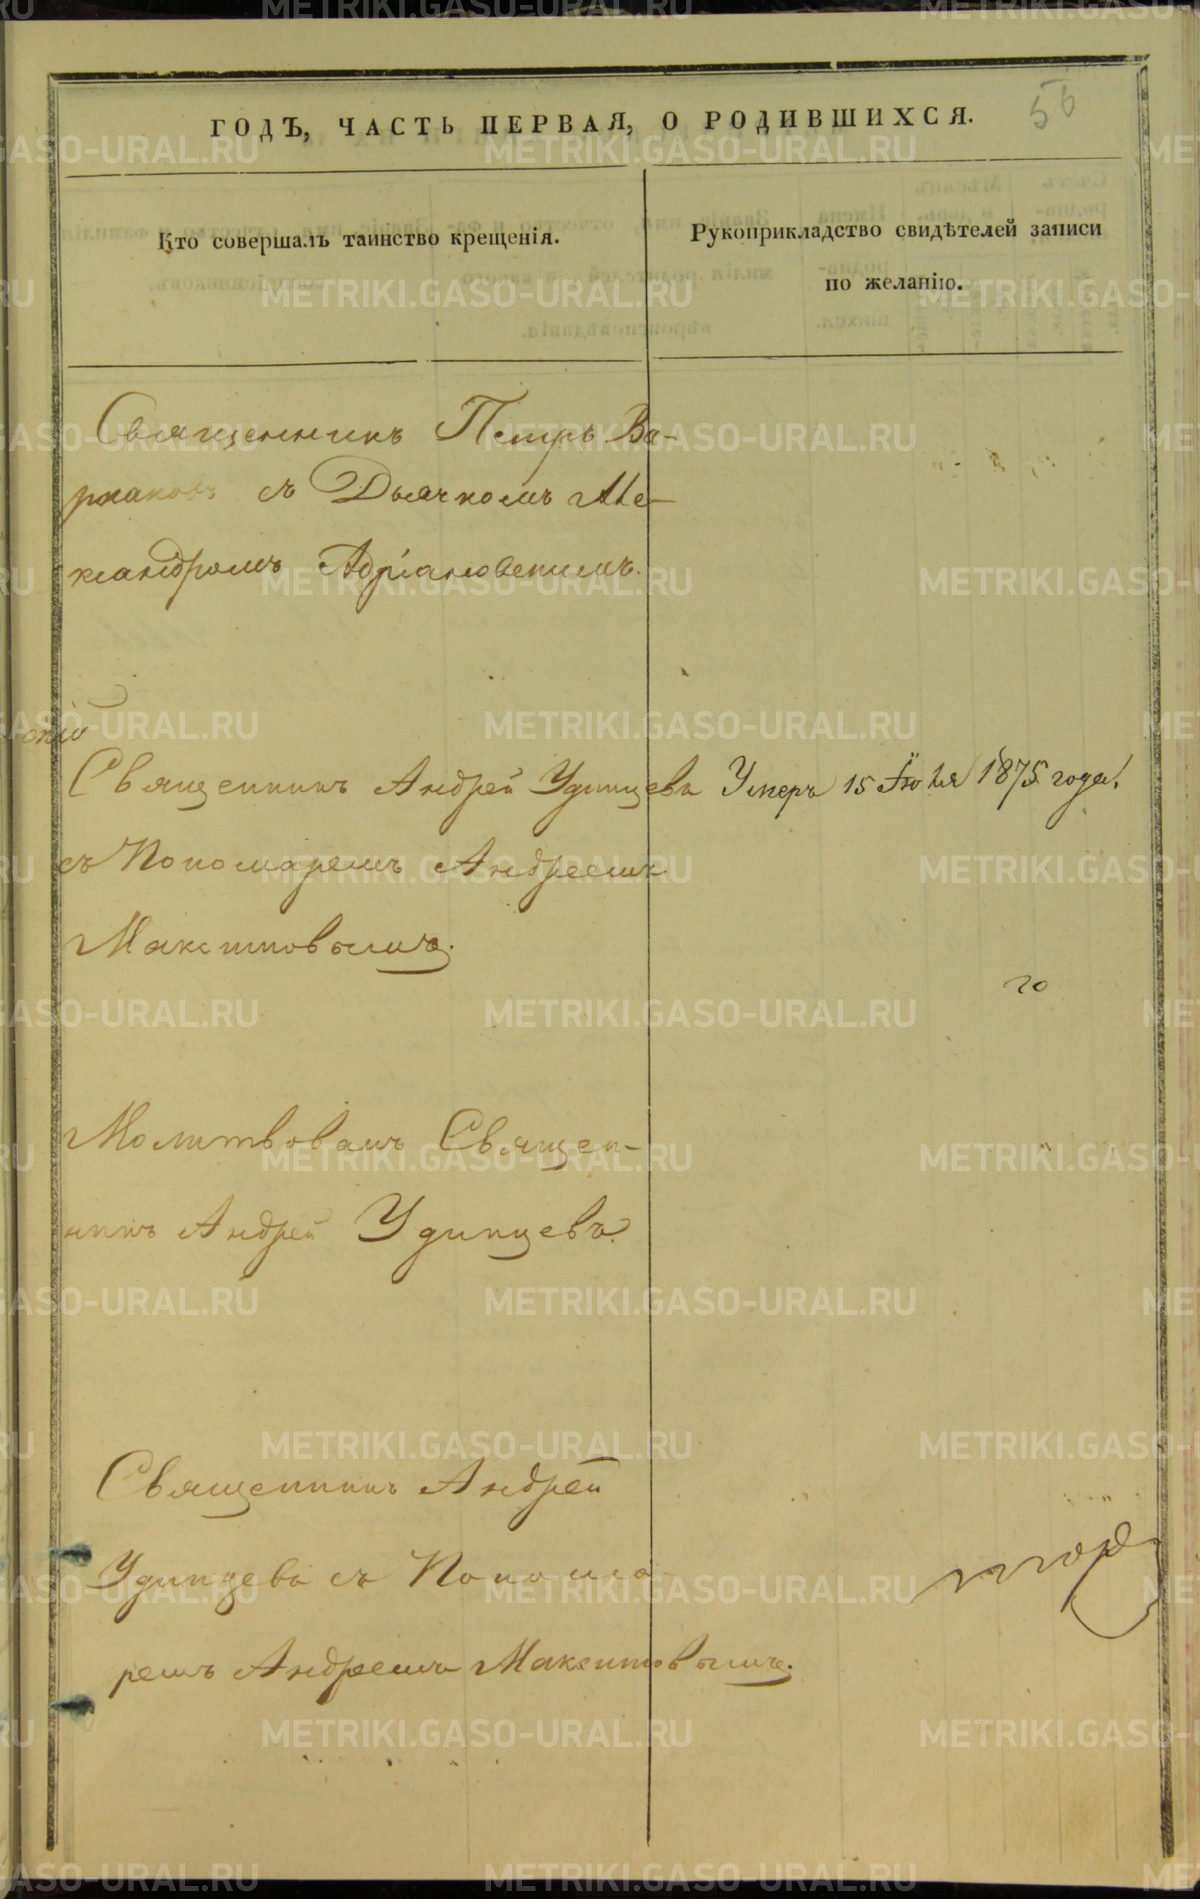 ГОДЪ, ЧАСТЬ ПЕРВАЯ, О РОДИВШИХСЯ.
56
Кто совершалъ таинство крещенія.
Рукоприкладство свидѣтелей записи
по желанію.
Священникъ Петръ Ва-
съ Дьячкомъ Але-
ксандромъ Адріановскимъ.
скій
Священникъ Андрей Удинцевъ
Умеръ 15 Іюля 1875 года.
съ Пономаремъ Андреемъ
Максимовымъ.
го
Молитвовалъ Священ-
никъ Андрей Удинцевъ.
Священникъ Андрей
Удинцевъ съ Понома-
ремъ Андреемъ Максимовымъ.
METRIKI.GASO-URAL.RU